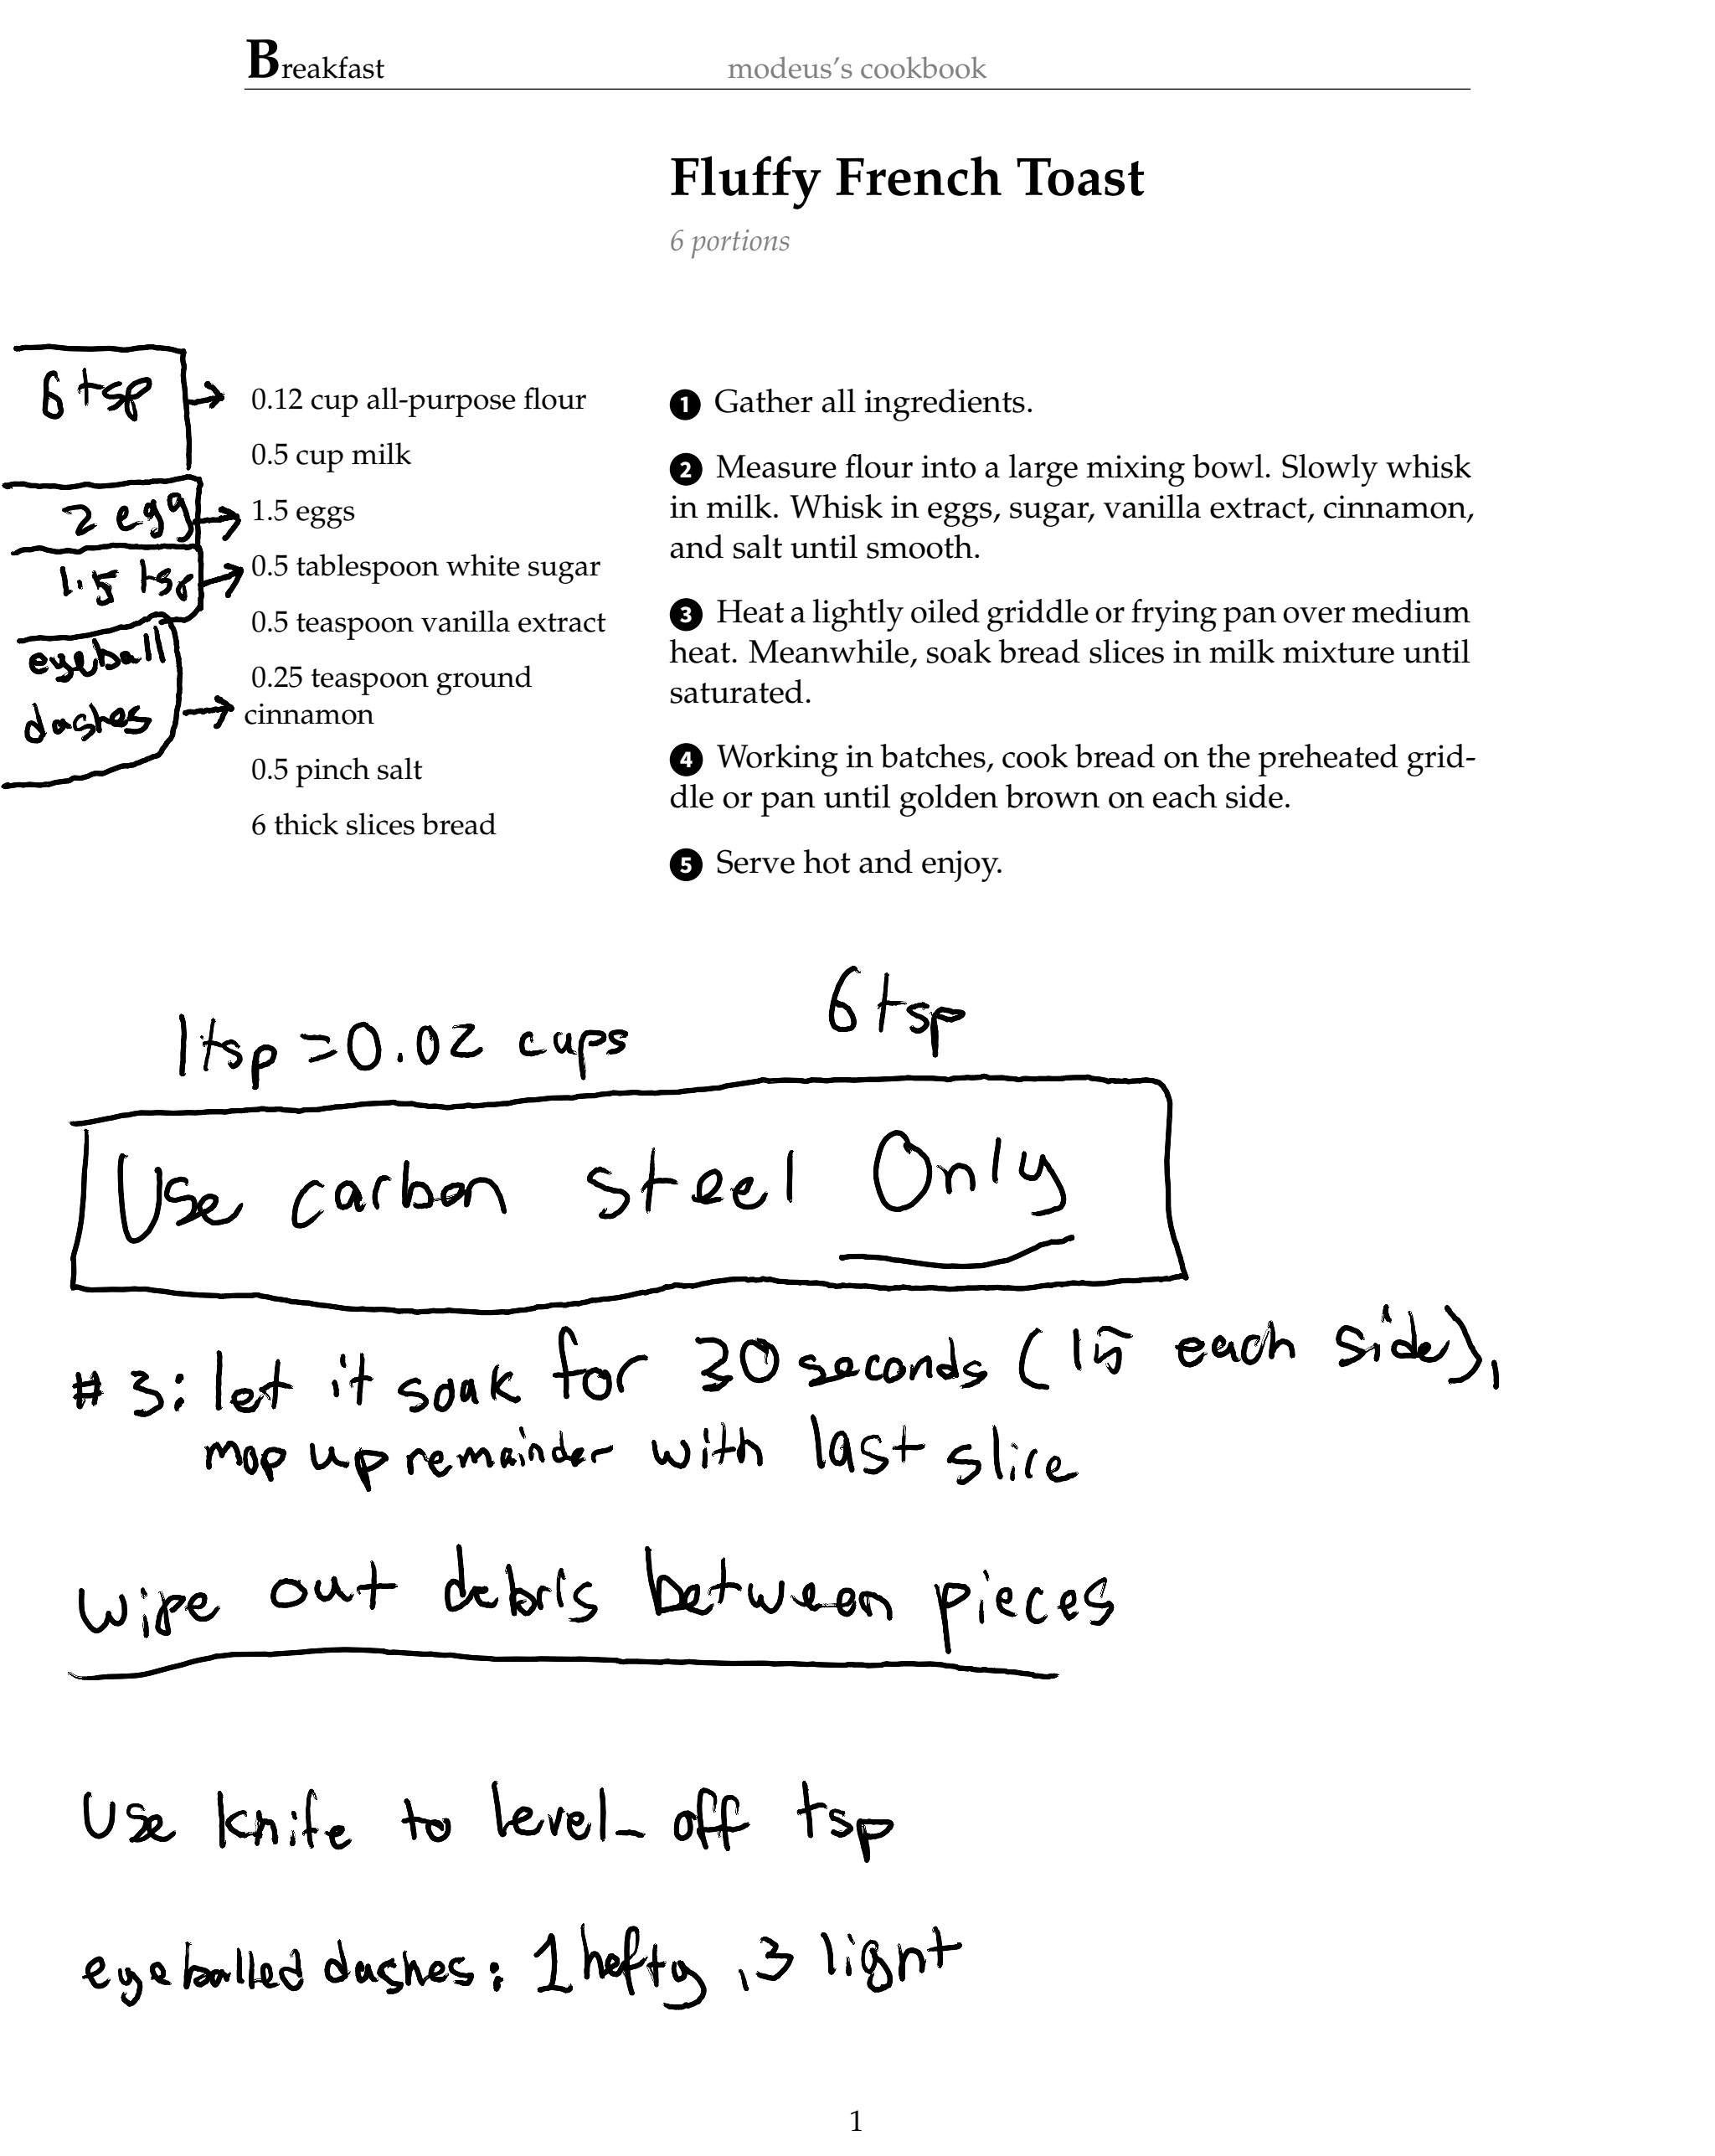 Breakfast
modeus's cookbook
Fluffy French Toast
6 portions
6 tsp
0.12 cup all-purpose flour
0.5 cup milk
2 egg
1.5 eggs
1.5 tsp
0.5 tablespoon white sugar
0.5 teaspoon vanilla extract
eyeball
dashes
0.25 teaspoon ground
cinnamon
0.5 pinch salt
6 thick slices bread
1 Gather all ingredients.
2 Measure flour into a large mixing bowl. Slowly whisk
in milk. Whisk in eggs, sugar, vanilla extract, cinnamon,
and salt until smooth.
3 Heat a lightly oiled griddle or frying pan over medium
heat. Meanwhile, soak bread slices in milk mixture until
saturated.
4 Working in batches, cook bread on the preheated grid-
dle or pan until golden brown on each side.
5 Serve hot and enjoy.
1 tsp = 0.02 cups
6 tsp
Use carbon steel Only
#3: let it soak for 30 seconds (15 each side),
mop up remainder with last slice
wipe out debris between pieces
Use knife to level-off tsp
eyeballed dashes: 1 hefty, 3 light
1